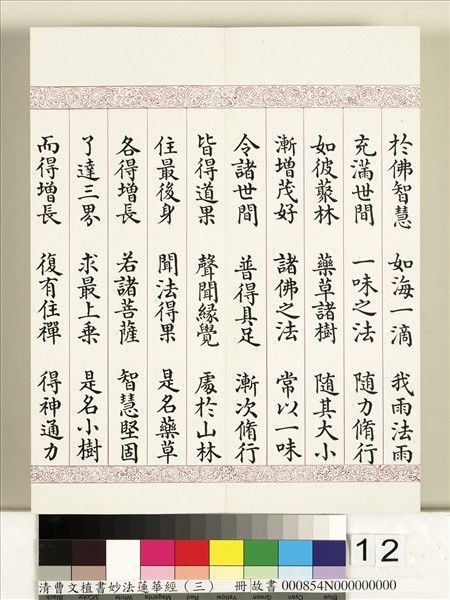 於佛智慧 如海一滴 我雨法雨
充滿世間 一味之法 隨力脩行
如彼藂林 藥草諸樹 隨其大小
漸增茂好 諸佛之法 常以一味
令諸世間 普得具足 漸次脩行
皆得道果 聲聞緣覺 處於山林
住最後身 聞法得果 是名藥草
各得增長 若諸菩薩 智慧堅固
了達三界 求最上乗 是名小樹
而得增長 復有住禪 得神通力
12
清曹文植書妙法蓮華經（三） 冊 故書 000854N000000000